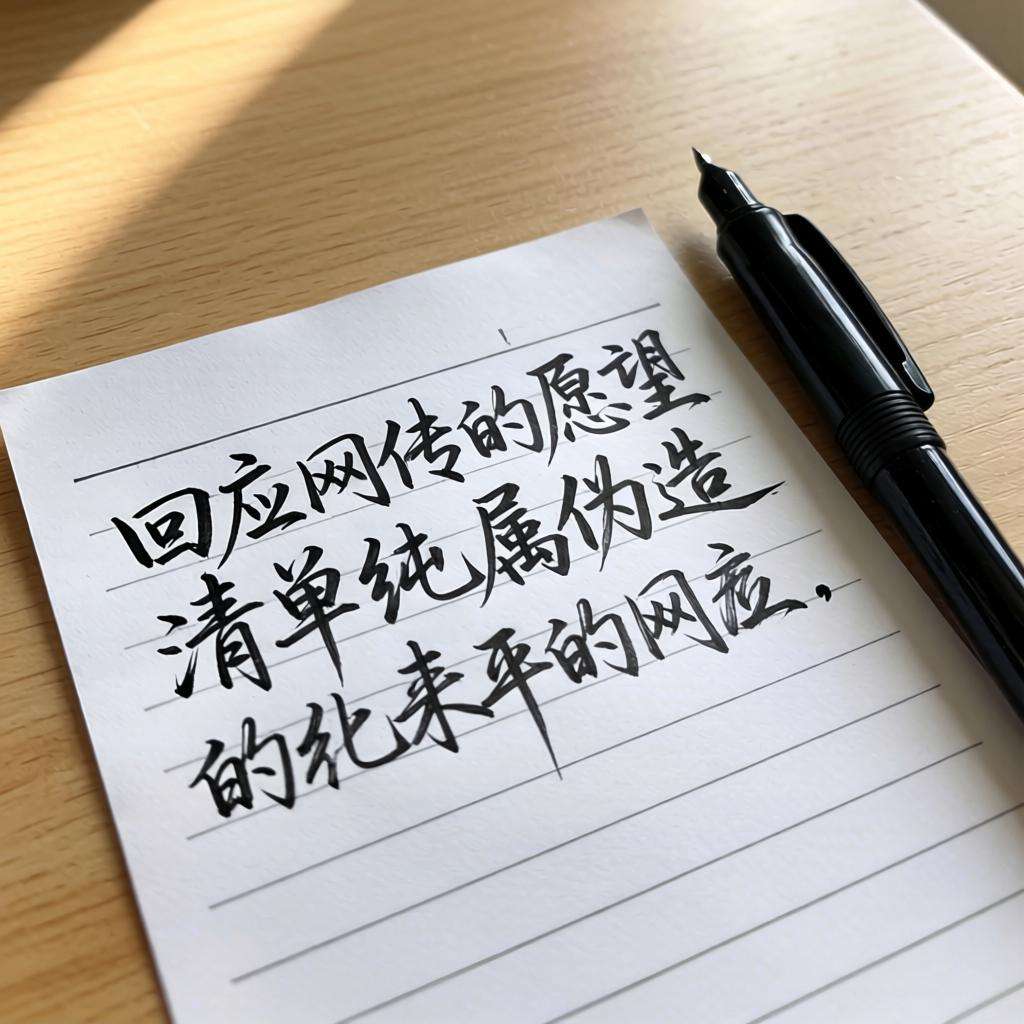 回应网传的愿望
清单纯属伪造
的纪来平的网应.